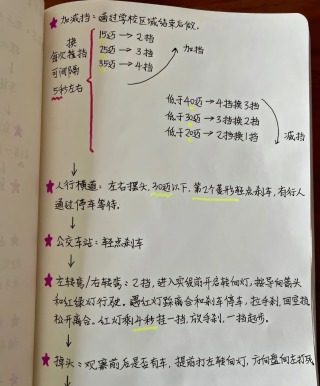 ★加减挡：通过学校区域结束后做.
15迈 → 2挡
25迈 → 3挡
35迈 → 4挡
加挡
换
每次换挡
可间隔
5秒左右
低于40迈 → 4挡换3挡
低于30迈 → 3挡换2挡
低于20迈 → 2挡换1挡
减挡
↓
★人行横道：左右摆头. 30迈以下. 第2个菱形轻点刹车, 有行人
通过停车等待.
↓
★公交车站：轻点刹车
↓
★左转弯/右转弯：2挡, 进入实线前开启转向灯, 按导向箭头
和红绿灯行驶. 遇红灯踩离合和刹车停车, 拉手刹, 回空挡,
松开离合. 红灯剩4秒挂一挡, 放手刹, 一挡起步.
↓
★掉头：观察前后是否有车, 提前打左转向灯, 方向盘向左打死
↓